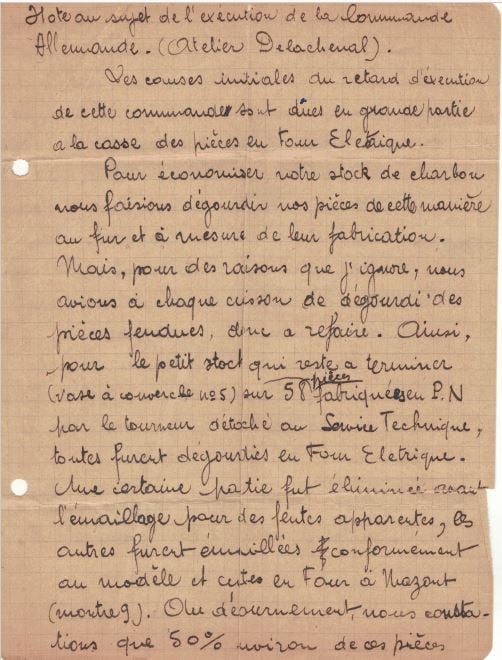 Note au sujet de l'exécution de la Commande
Allemande. (Atelier Delachenal).
Les causes initiales du retard d'exécution
de cette commande sont dûes en grande partie
a la casse des pièces en Four Eletrique.
Pour économiser notre stock de charbon
nous faisions dégourdir nos pièces de cette manière
au fur et à mesure de leur fabrication.
Mais, pour des raisons que j'ignore, nous
avions à chaque cuisson de dégourdi des
pièces fendues, donc a refaire. Ainsi,
pour le petit stock qui reste a terminer
(vase à couvercle no 5) sur 58 pièces fabriquées en P.N
par le tourneur détaché au Service Technique,
toutes furent dégourdies en Four Eletrique.
Une certaine partie fut éliminée avant
l'émaillage pour des fentes apparentes, les
autres furent émaillées conformément
au modèle et cuites en Four à Mazout
(montre 9). Au défournement, nous consta-
tions que 50% environ de ces pièces